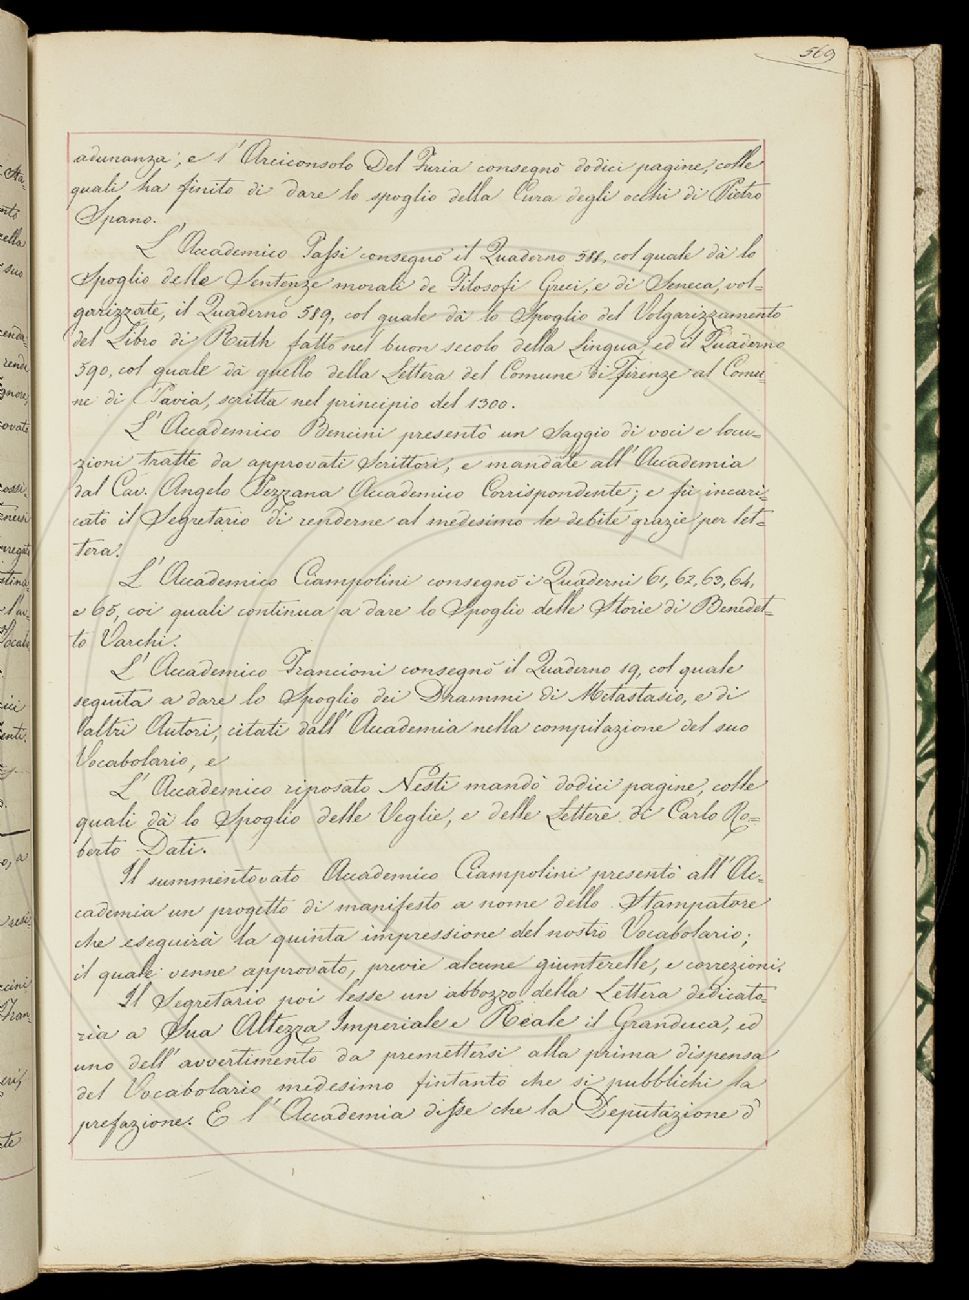 569
adunanza; e l'Arciconsolo Del Furia consegnò dodici pagine, colle
quali ha finito di dare lo spoglio della Cura degli occhi di Pietro
Spano.
L'Accademico Fassi consegnò il Quaderno 588, col quale dà lo
Spoglio delle Sentenze morali de Filosofi Greci, e di Seneca, vol=
garizzate, il Quaderno 589, col quale dà lo Spoglio del Volgarizzamento
del Libro di Ruth fatto nel buon secolo della Lingua, ed il Quaderno
590, col quale dà quello della Lettera del Comune di Firenze al Comu=
ne di Pavia, scritta nel principio del 1300.
L'Accademico Bencini presentò un Saggio di voci e locu=
zioni tratte da approvati Scrittori, e mandate all'Accademia
dal Cav. Angelo Pezzana Accademico Corrispondente; e fù incari=
cato il Segretario di renderne al medesimo le debite grazie per let=
tera.
L'Accademico Ciampolini consegnò i Quaderni 61, 62, 63, 64,
e 65, coi quali continua a dare lo Spoglio delle Storie di Benedet=
to Varchi.
L'Accademico Francioni consegnò il Quaderno 19, col quale
seguita a dare lo Spoglio dei Drammi di Metastasio, e di
altri Autori, citati dall'Accademia nella compilazione del suo
Vocabolario, e
L'Accademico riposato Nesti mandò dodici pagine, colle
quali dà lo Spoglio delle Veglie, e delle Lettere di Carlo Ro=
berto Dati.
Il summentovato Accademico Ciampolini presentò all'Ac=
cademia un progetto di manifesto a nome dello Stampatore
che eseguirà la quinta impressione del nostro Vocabolario;
il quale venne approvato, previe alcune giunterelle, e correzioni.
Il Segretario poi lesse un abbozzo della Lettera dedicato=
ria a Sua Altezza Imperiale e Reale il Granduca, ed
uno dell'avvertimento da premettersi alla prima dispensa
del Vocabolario medesimo fintanto che si pubblichi la
prefazione. E l'Accademia disse che la Deputazione ò